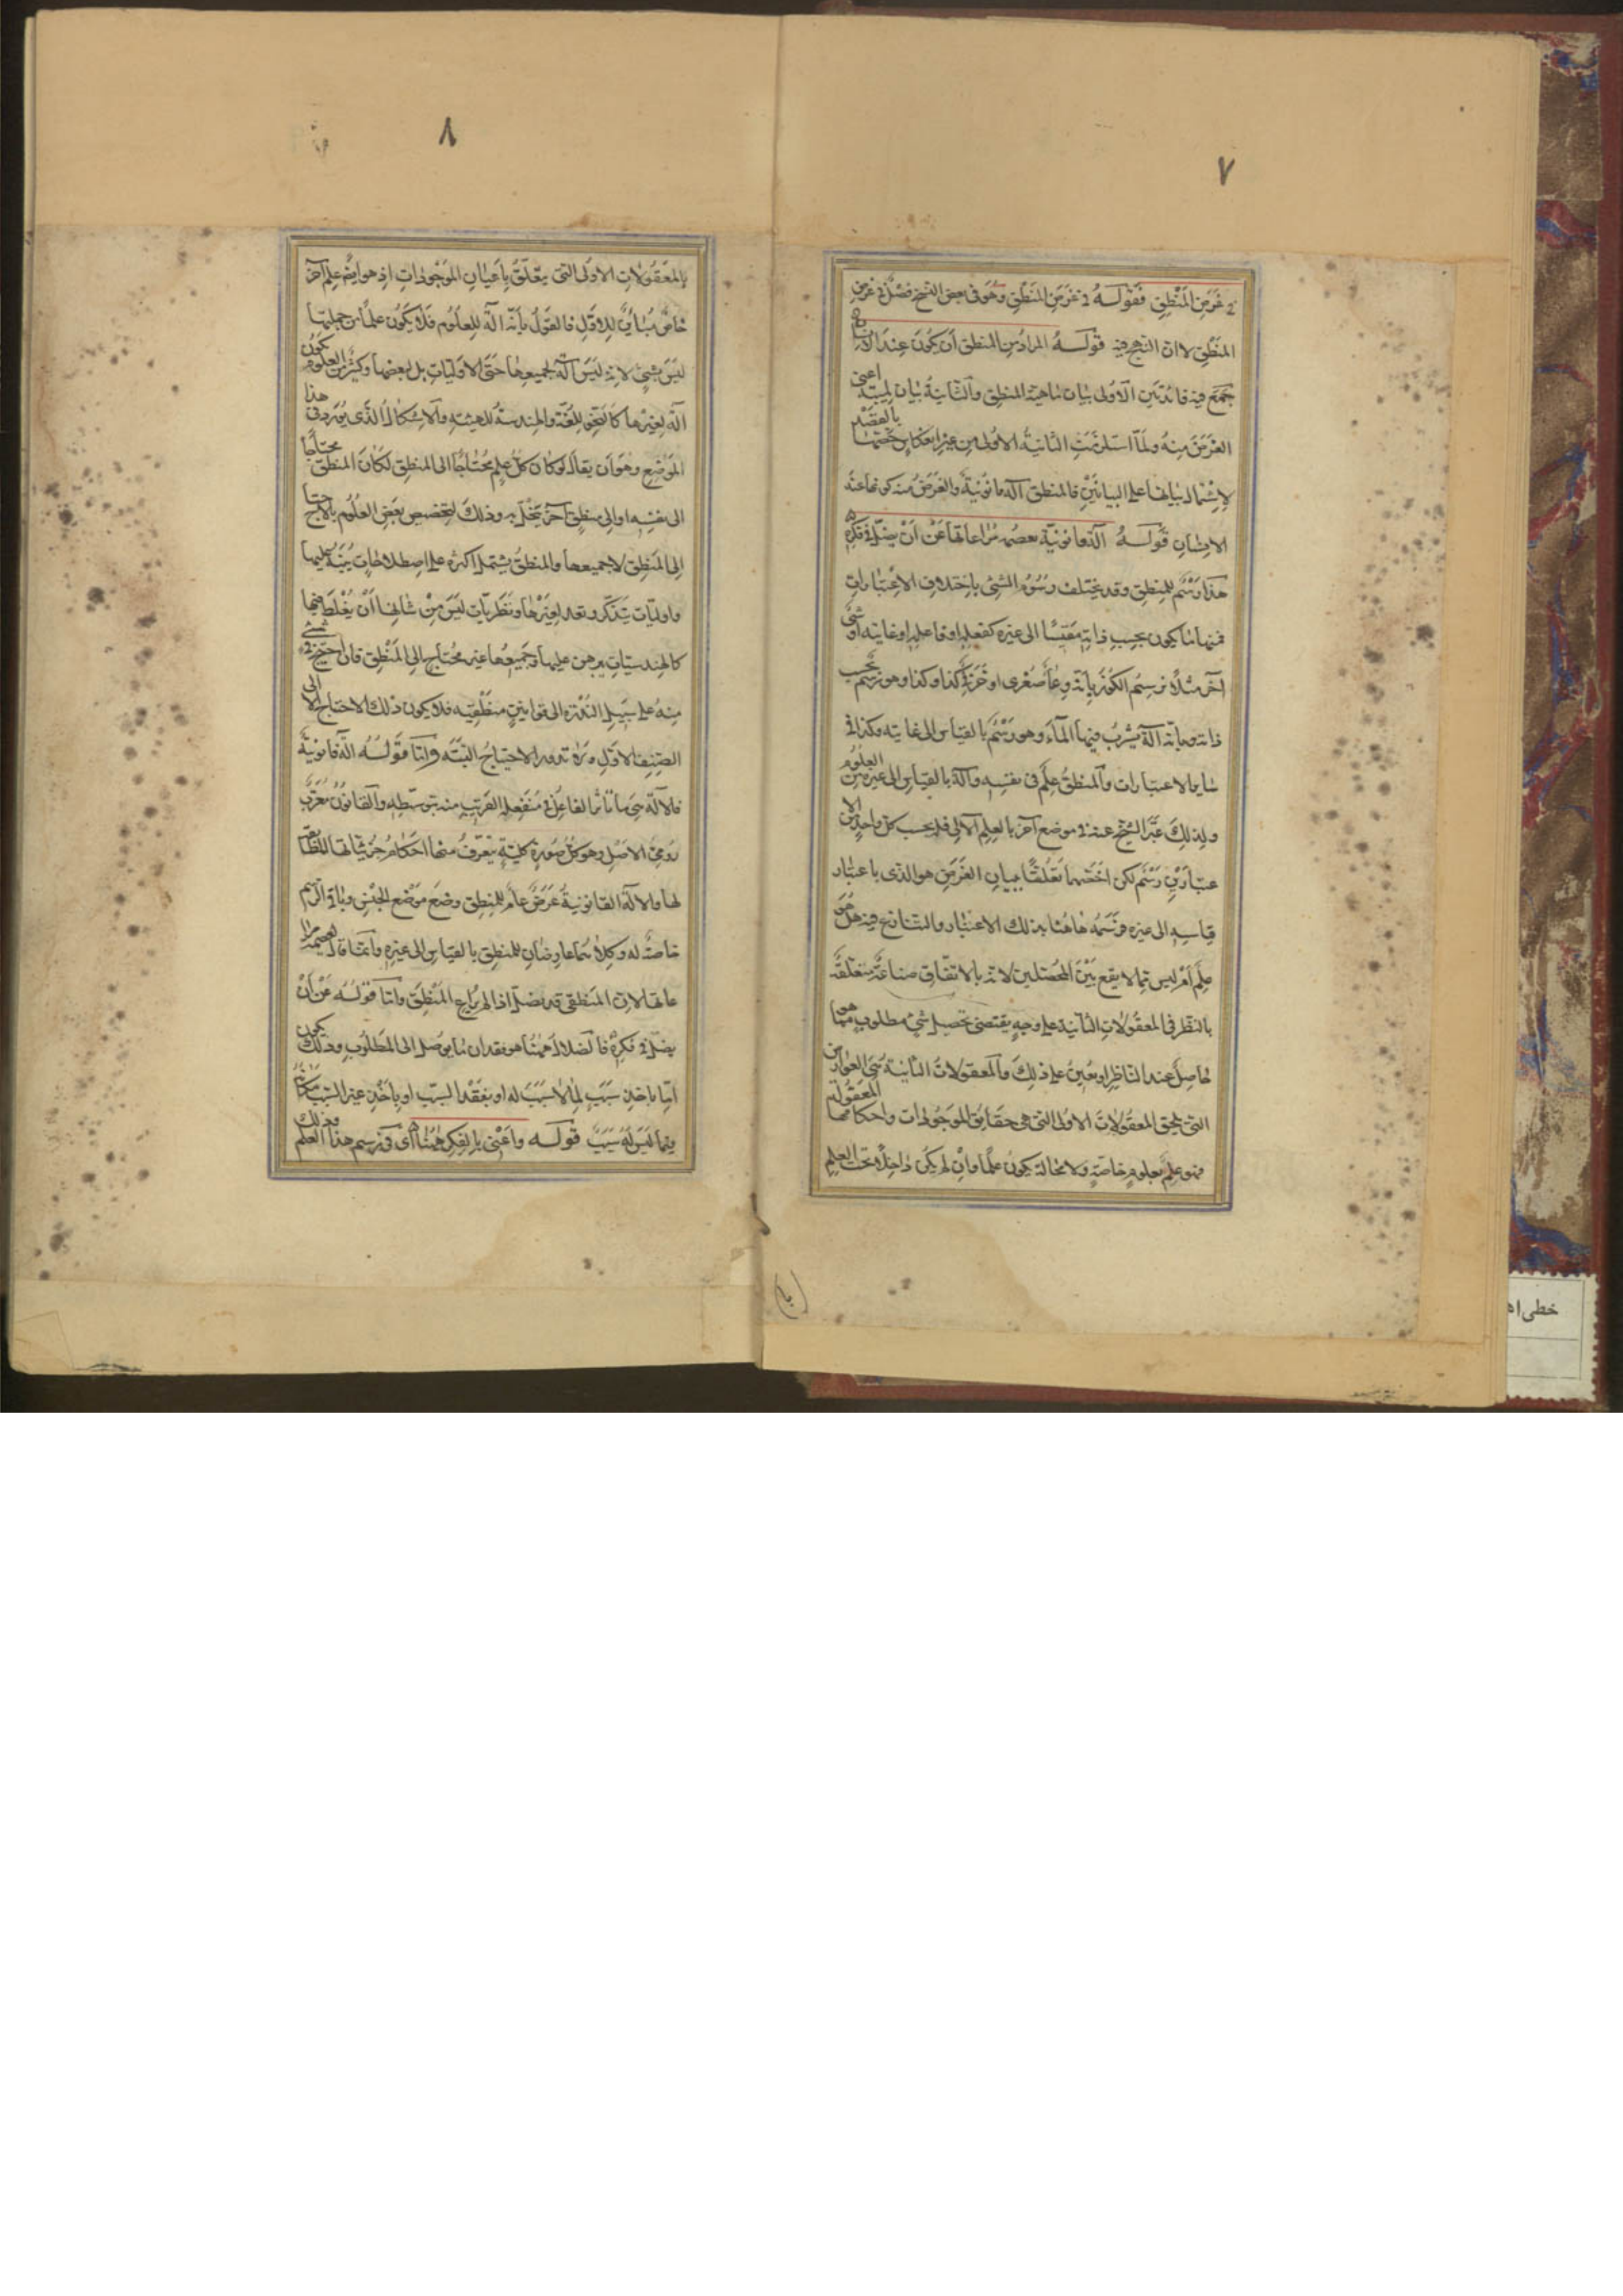 ٧
في غَرَضِ المَنْطِقِ فقولـه في غرَضِ المَنطقِ وهُوَ في بعض النسخ فصْلٌ في غرَضِ
المَنْطِقِ لا ان النهج فيه قولـه المرادُ من المنطق أن يكونَ عندَ الانسان
جمَعَ فيه فائدتَين الاُولى بيان ماهية المنطِق والثانيةُ بيان لميته اعنى
الغرَضَ منهُ ولمّا استلزمَتِ الثانيةُ الاُولى من غير انعكاسٍ خصّتها بالقصْد
لاِشْتمال بيانها على البيانَيْنِ فالمنطق آلة قانونيةٌ والغرَضُ منه كونها عند
الانسان قولـه آلة قانونيّة تعصمه مُراعاتها عَنْ اَنْ يضلّ في فكره
هذا رَسْمٌ للمنطِقِ وقد يختلف رُسُومُ الشئ باختلاف الاعْتبارات
فمنها ما يكون بحسب ذاته مَقيْسًا الى غيره كفعله او فاعله او غايته او شئ
آخر مثلاً يُرسَمُ الكوُز بأنه وعاءٌ صُفرى او خزَفىّ كذا وكذا وهو رسْم بحسب
ذاته وبأنه آلة يشربُ فيها الماءَ وهو رَسْمٌ بالقياس الى غايته وكذا في
سَاير الاعتبارات والمنطقُ علمٌ في نفسه وآلة بالقياس الى غيره من العلوم
ولذلكَ عبّرَ الشيخ عنه في موضع آخر بالعلم الآلى فله بحسب كل واحدٍ من الا
عتبارَيْنِ رَسْم لكن اخَصّهما تَعلقًا ببيانِ الغَرَضِ هو الذى باعتبار
قياسه الى غيره فرَسَمَهُ هٰاهُنا بذلك الاعتبار والتنازع فيه هل هُوَ
علمٌ اَمْ ليس مِمّا لا يقع بَيْنَ المحصّلين لانه بالاتفاق صناعَةٌ متعلقةٌ
بالنَظر في المعقولات الثانية على وجهٍ يقتضى تحصيل شئ مطلوبٍ ممّا هو
حاصل عند الناظِر او يُعِينُ على ذلكَ والمعقولات الثانية هىَ العوارض
التى تلحق المعقُولاتِ الاولى التى هى حقايق الموجُودات واحكامها المعقولة
فهو علمٌ بعلومٍ خاصّةٍ ولا محالة يكونُ علمًا ما وان لم يكن داخِلاً تحت العلم
٨
بالمعْقُولاتِ الاولى التى يتعَلّقُ بأعيان الموْجوداتِ اذ هو ايضًا علم آخر
خاصٌّ مُباينٌ للاوّل فالقوْلُ بأنه آلة للعلوُم فلا يكون علماً من جملتها
ليَسَ بشئ لانه ليسَ آلةً لجميعهٰا حَتّى الاوّليّاتِ بل لبعضها وكثيرٌ من العلوم يكونُ
آلةً لغيرها كالنّحوِ لِلغةِ والهندسة للهيئة والاشكال الّذى يُورد في هذا
الموضِع وهو اَن يقال لو كان كل علم مُحْتاجًا الى المنطِق لكان المنطق محتاجًا
الى نفسِه او الى منطقٍ آخر ينحلّ به وذلكَ لتخصيص بعَض العلوُم بالاحتيا
ج إلى المَنطِق لا جميعها والمنطقُ يشتمل اكثره على اصطلاحاتٍ يُنَبّه عليها
واوليّات يُتذكر وتعد لغيرها ونَظَريّات ليسَ مِنْ شانها اَنْ يُغْلَط فيها
كالهندسيّات يبرهن عليها وجميعها غير محتاج الى المَنْطق فان احتيج في شئ
مِنهُ على سَبيل النّدرة الى قوانين منطقيّه فلا يكون ذلك الاحتياج الا الى
الصّنف الاوّل ولا يدور الاحتياجُ البَتّه وامّا قولُه آلة قانونيةٌ
فالآلة هى ما يؤثر الفاعلُ في مُنفعله القريبِ منه بتوسّطه والقانون مُعَرّبٌ
رومىُّ الاصْل وهو كلُّ صُورَةٍ كليّةٍ يتعرّفُ منها احكامُ جزئيّاتها المطا
بقة لها والآلة القانونيةُ عَرَضٌ عامٌّ للمنطِق وضع مَوْضعَ الجنسِ وباقى الرسم
خاصّةٌ له وكلاهُما عارضَان للمنطق بالقياس الى غيره وانما قال تعصمه مرا
عاتها لان المنطقى قد يضلّ اذا لم يُراع المَنْطِق وامّا قولُه عَنْ اَنْ
يضلّ في فكره فالضلال هٰهُنا هو فقدان ما يوصل الى المطلُوبِ وذلكَ يكون
امّا باخذِ سَبَبٍ لِما لا سبَبَ له او بفَقْدِ السبَب او باَخْذِ غير السَبَبِ مكانَه
فيما ليسَ لهُ سَبَبٌ قولـه واَعْنى بالفكرِ هٰهُنا اى في رسم هذا العلم وذلك